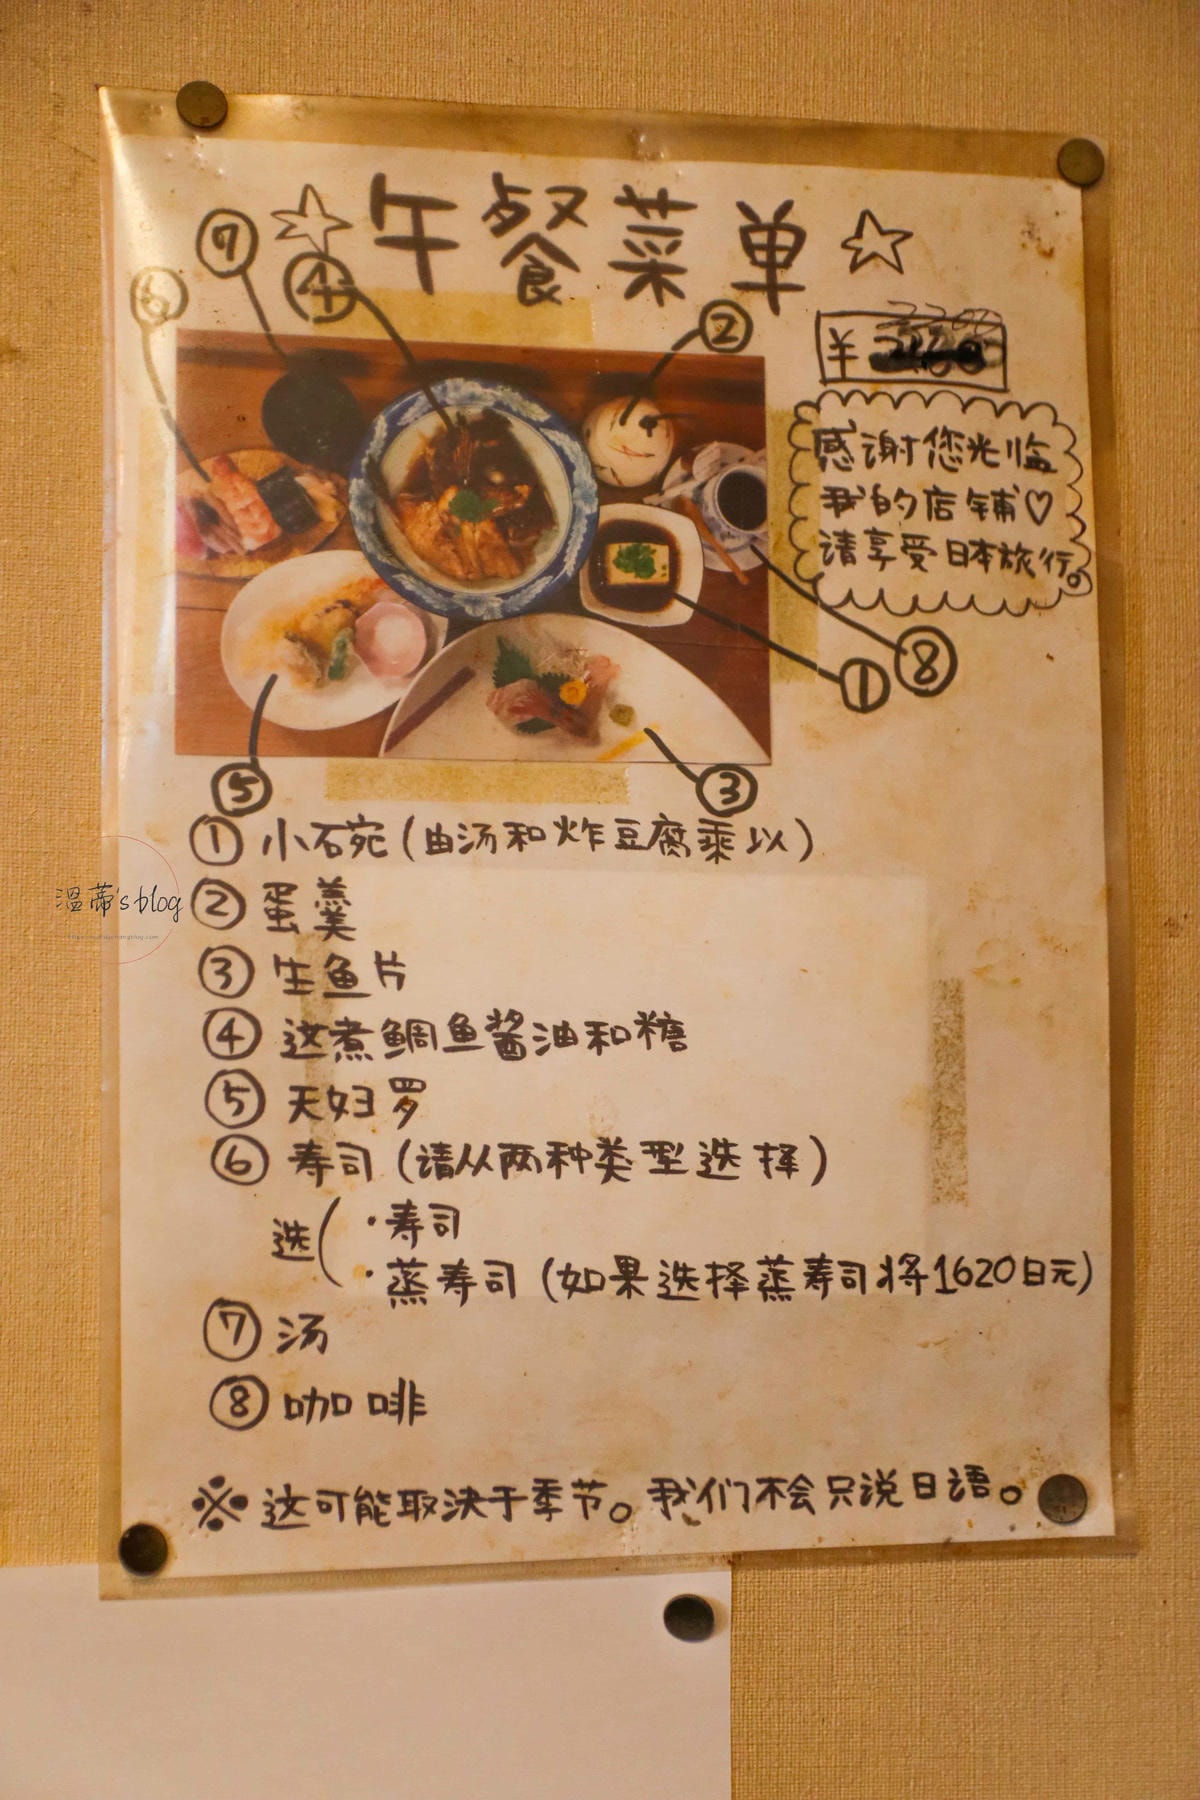 ☆午餐菜单☆
⑦
④
⑥
②
¥
感谢您光临
我的店铺♡
请享受日本旅行。
⑧
①
⑤
③
① 小石宛(由汤和炸豆腐乘以)
② 蛋羹
③ 生鱼片
④ 这煮鲷鱼酱油和糖
⑤ 天妇罗
⑥ 寿司(请从两种类型选择)
选(・寿司
・蒸寿司(如果选择蒸寿司将1620日元)
⑦ 汤
⑧ 咖啡
※这可能取决于季节。我们不会只说日语。
溫蒂's blog